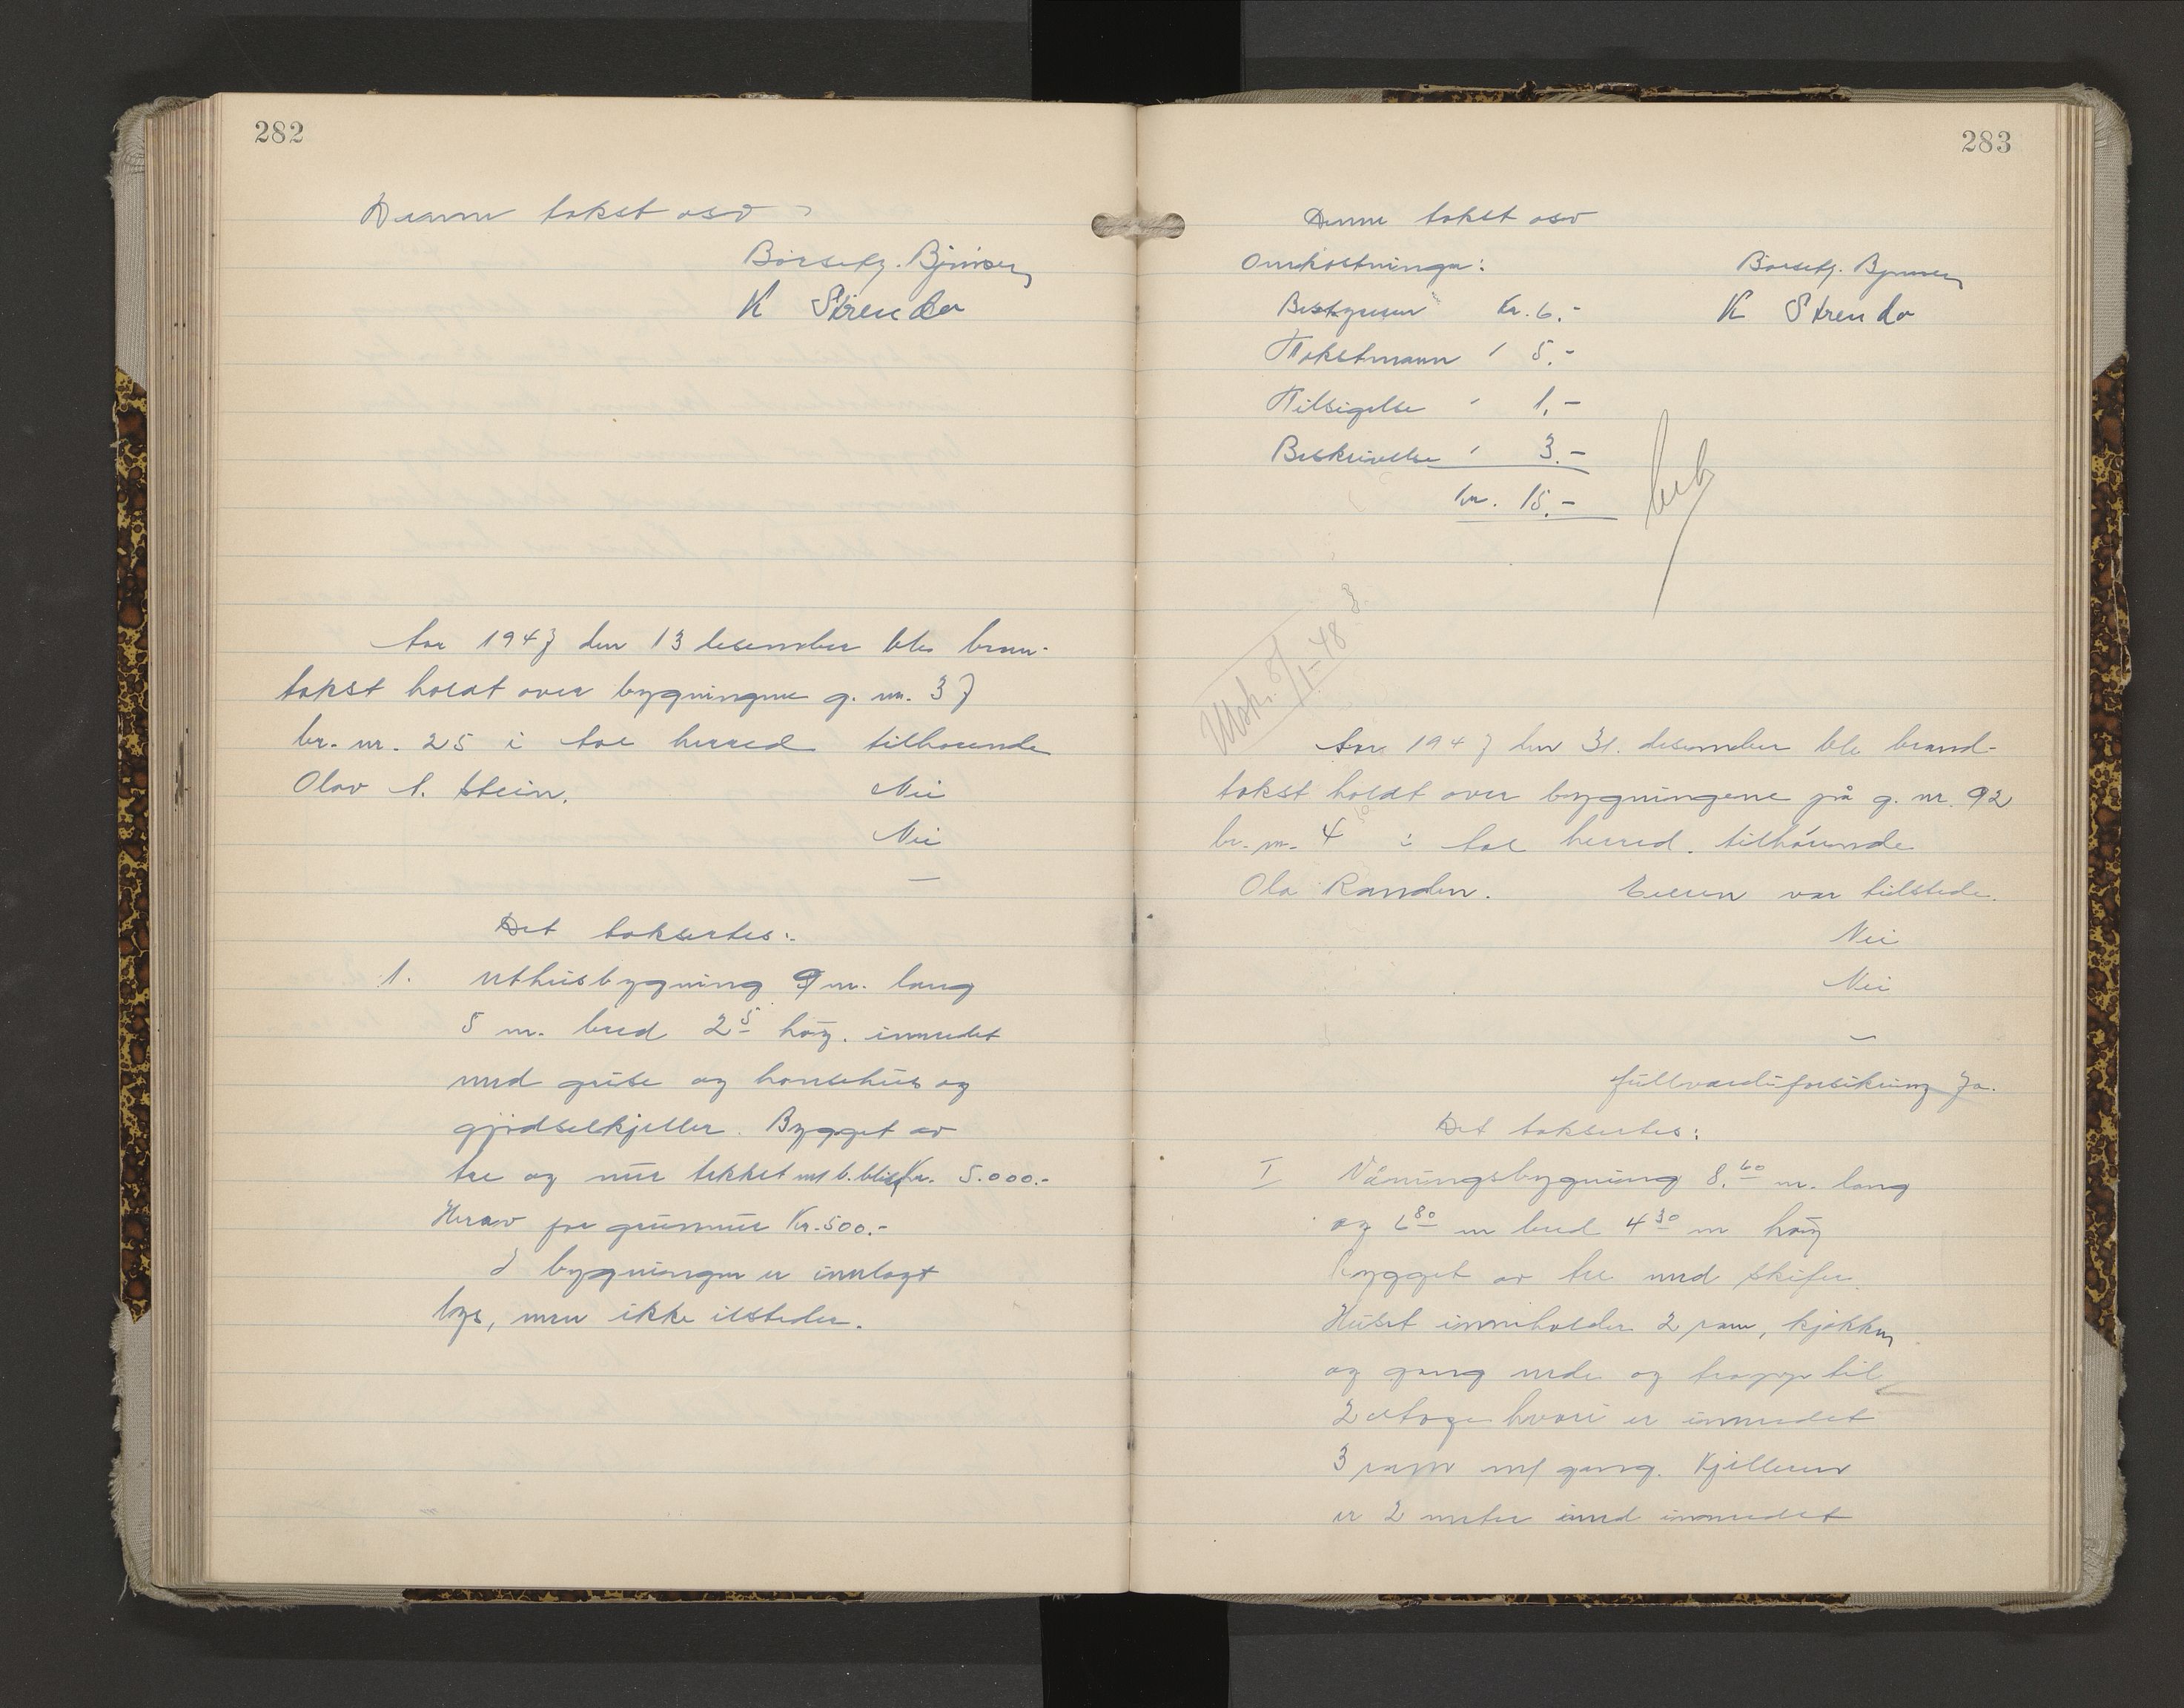 282
Denne takst osv
Børsetg. Bjørnsen
K Strenda
Aar 1947 den 13 desember ble bran-
takst holdt over bygningene g. nr. 37
br. nr. 25 i herred tilhørende
Olav A. Stein. Nei
Nei
—
Det taksertes:
1. Uthusbygning 9 m. lang
5 m. bred 2⁵ høy. innredet
med grise og hønsehus og
gjødselkjeller. Bygget av
tre og mur tekket m/ b. blikk Kr. 5.000.-
Herav for grunmur Kr. 500.-
I bygningen er innlagt
lys, men ikke ildsteder.
283
Denne takst osv
Omkostninger: Børsetg. Bjørnsen
Bestyreren Kr. 6.- K Strenda
Takstmann " 5.-
Tilsigelse " 1.-
Beskrivelse " 3.-
kr. 15.-
Utsk. 8/1-48
Aar 1947 den 31. desember ble brand-
takst holdt over bygningene på g. nr. 92
br. nr. 4 i herred. tilhørende
Ola Randen. Eieren var tilstede.
Nei
Nei
—
fullverdiforsikring Ja.
Det taksertes:
I Våningsbygning 8.⁶⁰ m. lang
og 6⁸⁰ m bred 4³⁰ m høy
bygget av tre med skifer.
Huset inneholder 2 rom, kjøkken
og gang nede og trapp til
2 etage hvori er innredet
3 rom m/ gang. Kjelleren
er 2 meter innredet